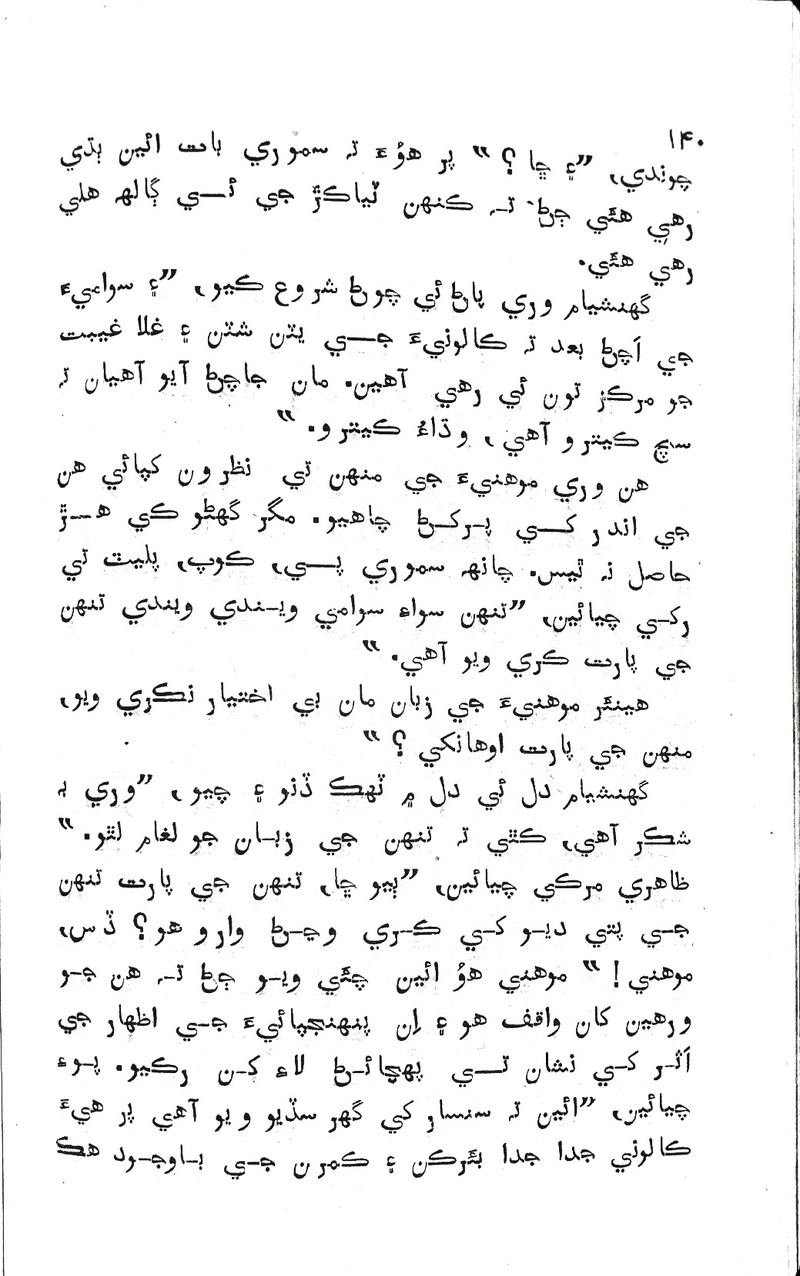 ۱۴۰
چوندي، ”۽ ڇا؟“ پر هوُءَ تہ سموري بات ائين ٻڌي
رهي هئي ڄڻ تہ ڪنهن ٽياڪڙ جي ئي ڳالھ هلي
رهي هئي.
گهنشيام وري پاڻ ئي چوڻ شروع ڪيو، ”۽ سواميءَ
جي اَچڻ بعد تہ ڪالونيءَ جي يٽن شٽن ۽ غلا غيبت
جو مرڪز تون ئي رهي آهين. مان جاچڻ آيو آهيان تہ
سچ ڪيترو آهي، وڌاءُ ڪيترو.“
هن وري موهنيءَ جي منهن تي نظرون کپائي هن
جي اندر کي پرکڻ چاهيو. مگر گهڻو ڪي هڙ
حاصل نہ ٿيس. چانھ سموري پي، ڪوپ، پليٽ تي
رکي چيائين، ”تنهن سواءِ سوامي ويندي ويندي تنهن
جي پارت ڪري ويو آهي.“
هينئر موهنيءَ جي زبان مان بي اختيار نڪري ويو،
منهن جي پارت اوهانکي؟“
گهنشيام دل ئي دل ۾ ٽهڪ ڏنو ۽ چيو، ”وري بہ
شڪر آهي، ڪٿي تہ تنهن جي زبان جو لغام لٿو.“
ظاهري مرڪي چيائين، ”ٻيو ڇا، تنهن جي پارت تنهن
جي پتي ديو کي ڪري وڃڻ وارو هو؟ ڏس،
موهني!“ موهني هوُ ائين چئي ويو ڄڻ تہ هن جو
ورهين کان واقف هو ۽ اِن پنهنجپائيءَ جي اظهار جي
اَثر کي نشان تي پهچائڻ لاءِ کن رڪيو. پوءِ
چيائين، ”ائين تہ سنسار کي گهر سڏيو ويو آهي پر هيءَ
ڪالوني جدا جدا بئرڪن ۽ ڪمرن جي باوجود هڪ